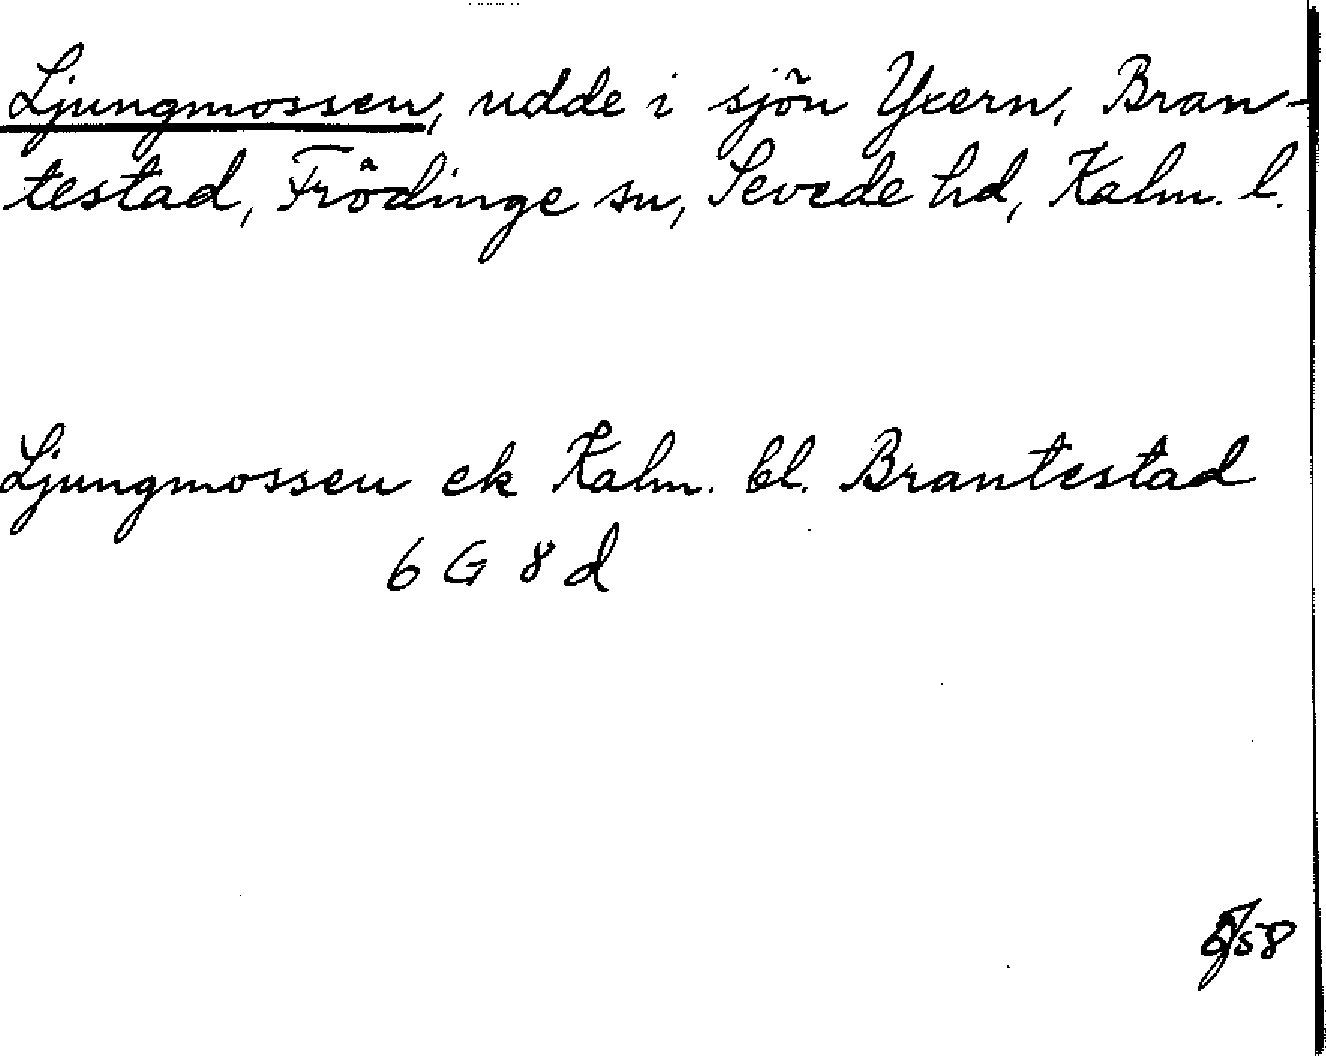 Ljungmossen, udde i sjön Yxern, Bran-
testad, Frödinge sn, Sevede hd, Kalm. l.
Ljungmossen ek Kalm. bl. Brantestad
6 G 8 d